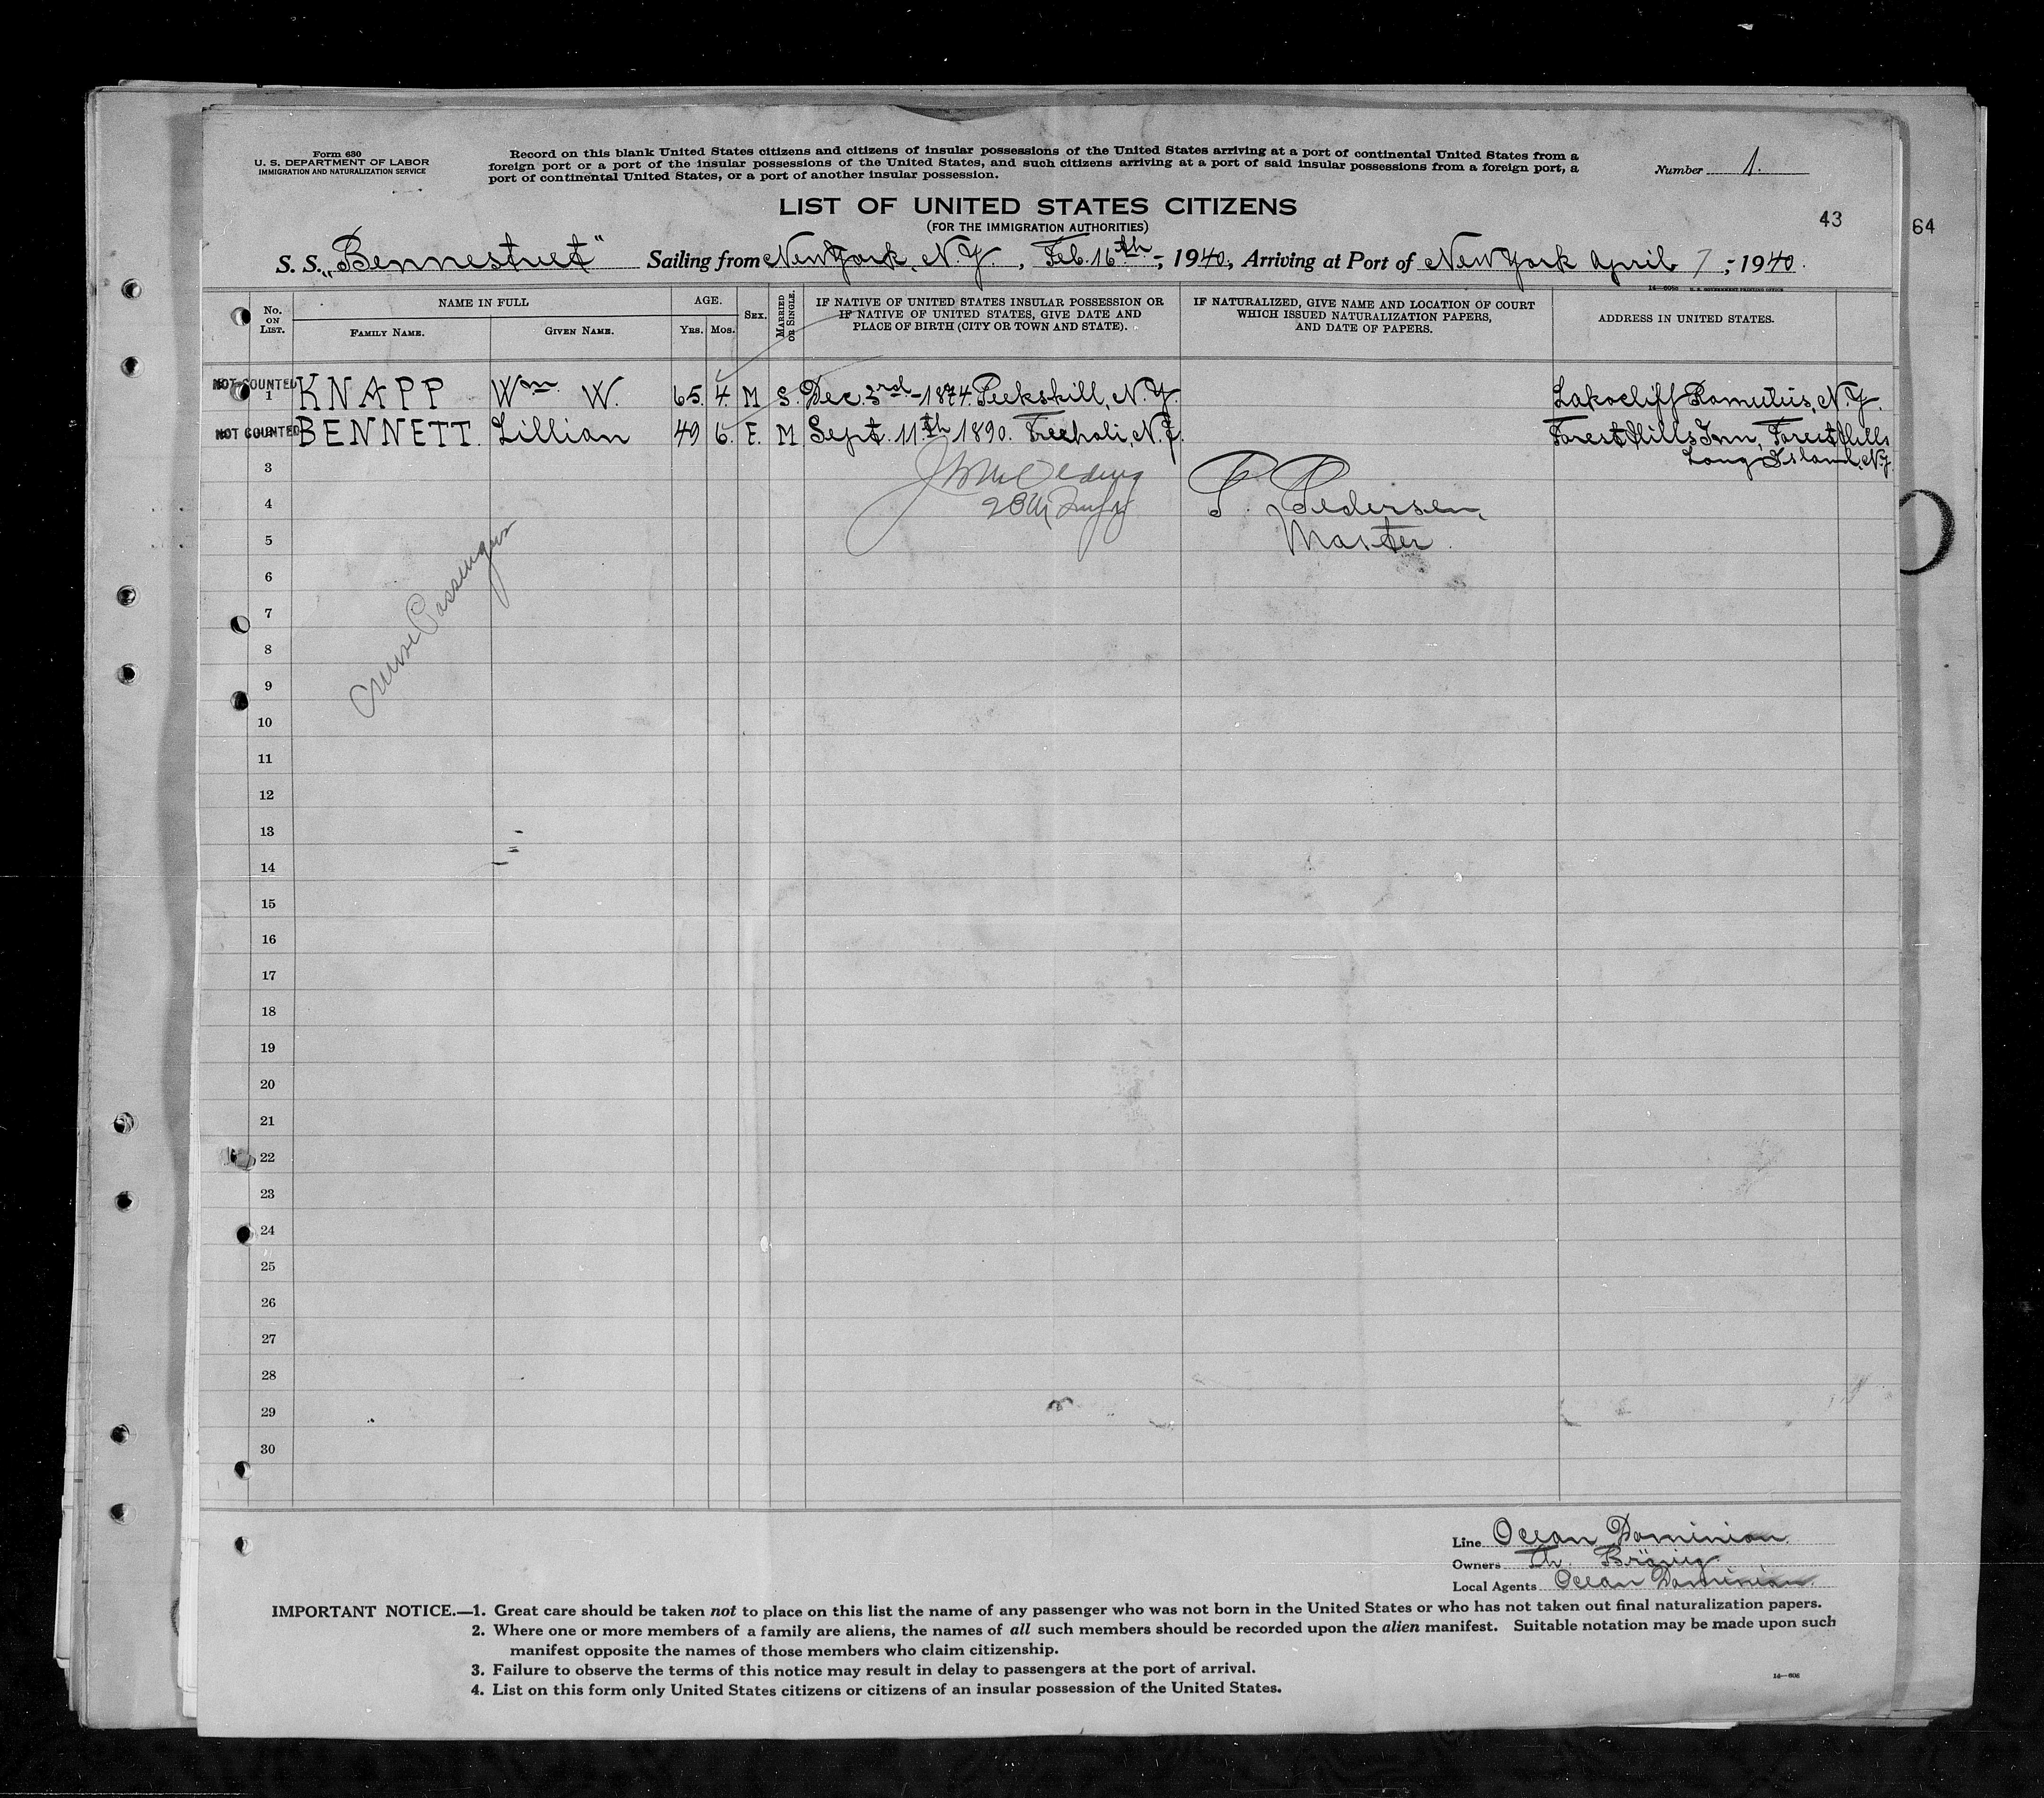 Form 630
U. S. DEPARTMENT OF LABOR
IMMIGRATION AND NATURALIZATION SERVICE
Record on this blank United States citizens and citizens of insular possessions of the United States arriving at a port of continental United States from a
foreign port or a port of the insular possessions of the United States, and such citizens arriving at a port of said insular possessions from a foreign port, a
port of continental United States, or a port of another insular possession.
Number 1.
LIST OF UNITED STATES CITIZENS
(FOR THE IMMIGRATION AUTHORITIES)
43
64
S. S. „Bennestvet" Sailing from New York, N.Y., Feb. 16th, 1940, Arriving at Port of New York April 7, 1940.
14—606 U. S. GOVERNMENT PRINTING OFFICE
No. ON LIST. NAME IN FULL FAMILY NAME. GIVEN NAME. AGE. YRS. MOS. SEX. MARRIED OR SINGLE. IF NATIVE OF UNITED STATES INSULAR POSSESSION OR IF NATIVE OF UNITED STATES, GIVE DATE AND PLACE OF BIRTH (CITY OR TOWN AND STATE). IF NATURALIZED, GIVE NAME AND LOCATION OF COURT WHICH ISSUED NATURALIZATION PAPERS, AND DATE OF PAPERS. ADDRESS IN UNITED STATES.
NOT COUNTED 1 KNAPP Wm. W. 65. 4. M S. Dec. 3rd-1874. Peekskill, N.Y. Romulus, N.Y.
NOT COUNTED BENNETT. Lillian 49 6. F. M Sept. 11th 1890. N.J. Forest Hills Inn, Forest Hills
Long Island, N.Y.
3
4 P. Pedersen,
5 Master.
Cruise Passengers
6
7
8
9
10
11
12
13
14
15
16
17
18
19
20
21
22
23
24
25
26
27
28
29
30
Line Ocean Dominion.
Owners Th. Brövig
Local Agents Ocean Dominion.
IMPORTANT NOTICE.—1. Great care should be taken not to place on this list the name of any passenger who was not born in the United States or who has not taken out final naturalization papers.
2. Where one or more members of a family are aliens, the names of all such members should be recorded upon the alien manifest. Suitable notation may be made upon such
manifest opposite the names of those members who claim citizenship.
3. Failure to observe the terms of this notice may result in delay to passengers at the port of arrival.
4. List on this form only United States citizens or citizens of an insular possession of the United States.
14—606